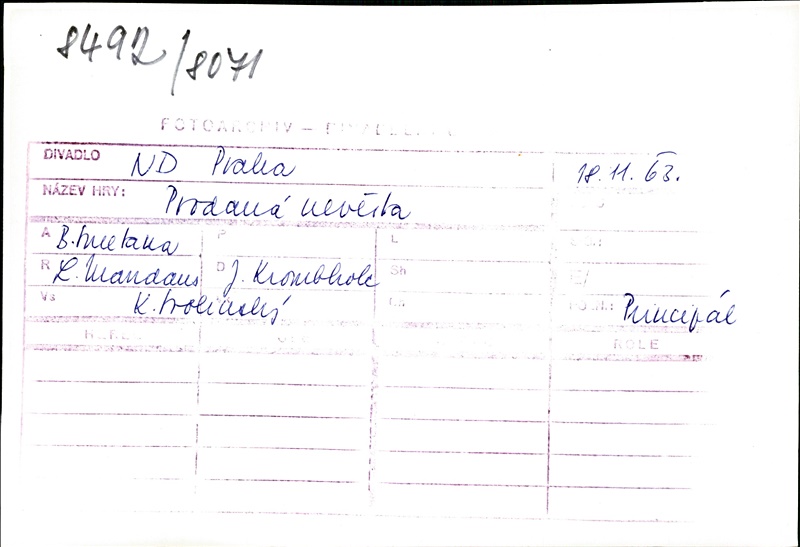 8492/8071
FOTOARCHIV – DIVADELNÍ
DIVADLO ND Praha 18.11.63.
NÁZEV HRY: Prodaná nevěsta
A B. Smetana P L
R L. Mandaus D J. Krombholc Sh
Vs K. Svolinský Principál
ROLE